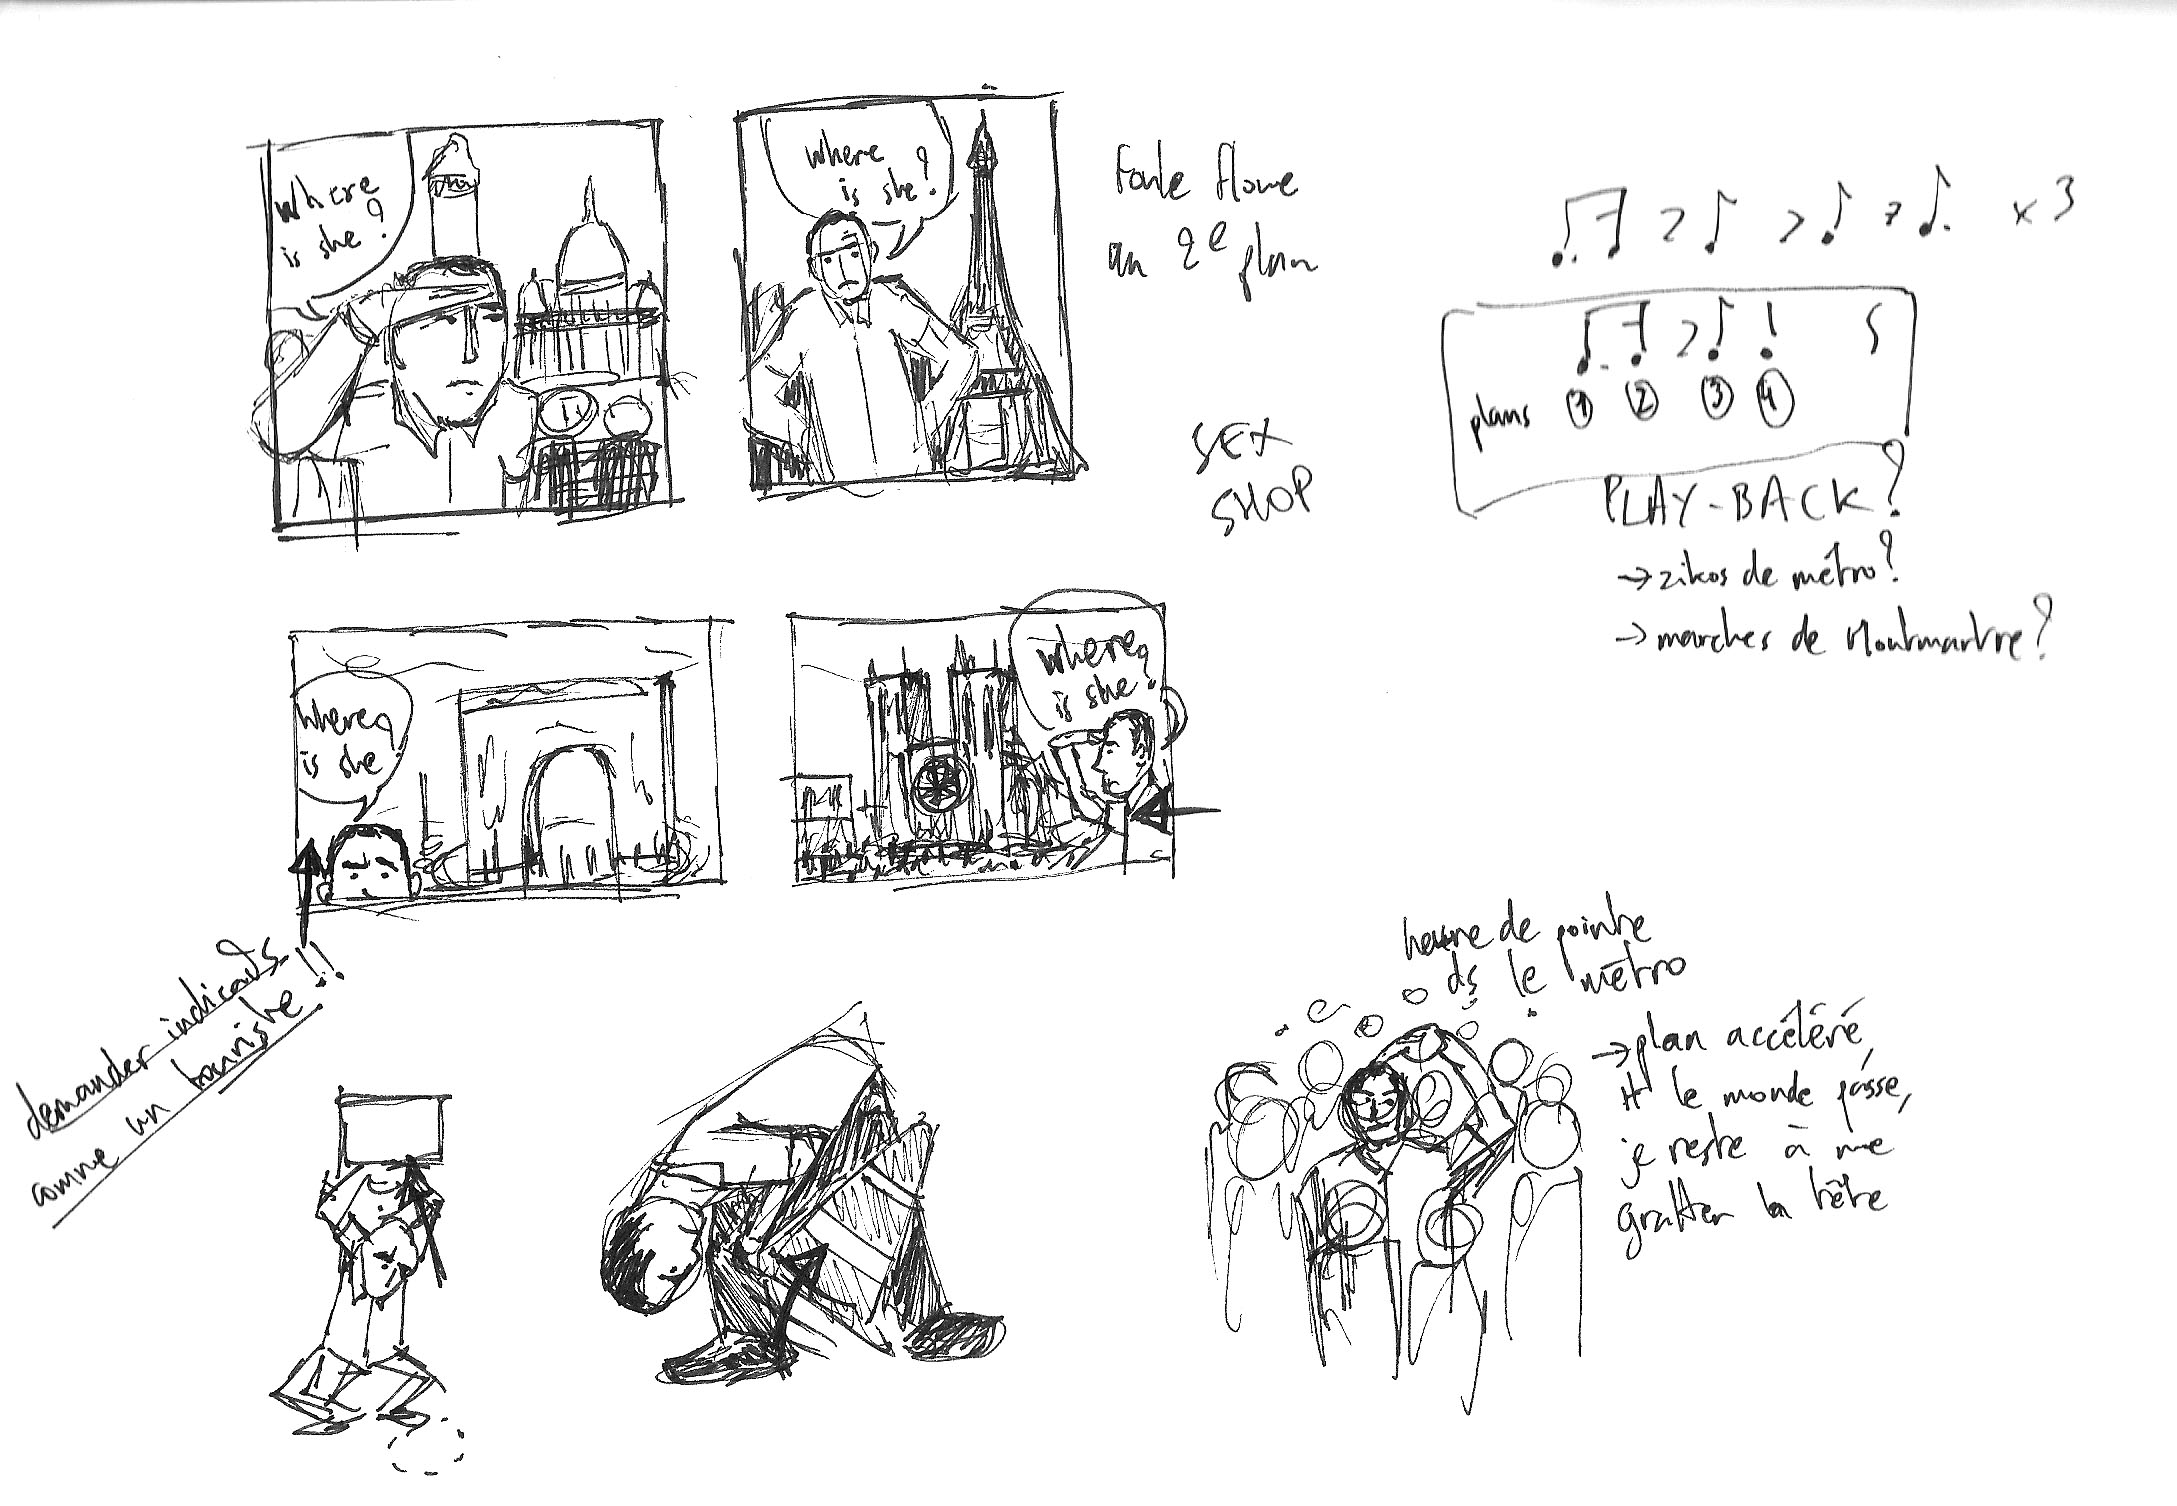 where
is she?
where
is she?
Foule floue
au 2e plan
x 3
plans 1 2 3 4
SEX
SHOP
PLAY-BACK?
→ zikos de métro?
→ marches de Montmartre?
where
is she?
where
is she?
demander indicat°s
comme un touriste!!
heure de pointe
ds le métro
→ plan accéléré,
tt le monde passe,
je reste à me
gratter la tête